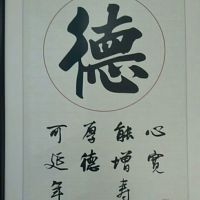 德
心寬
能增壽
厚德
可延年